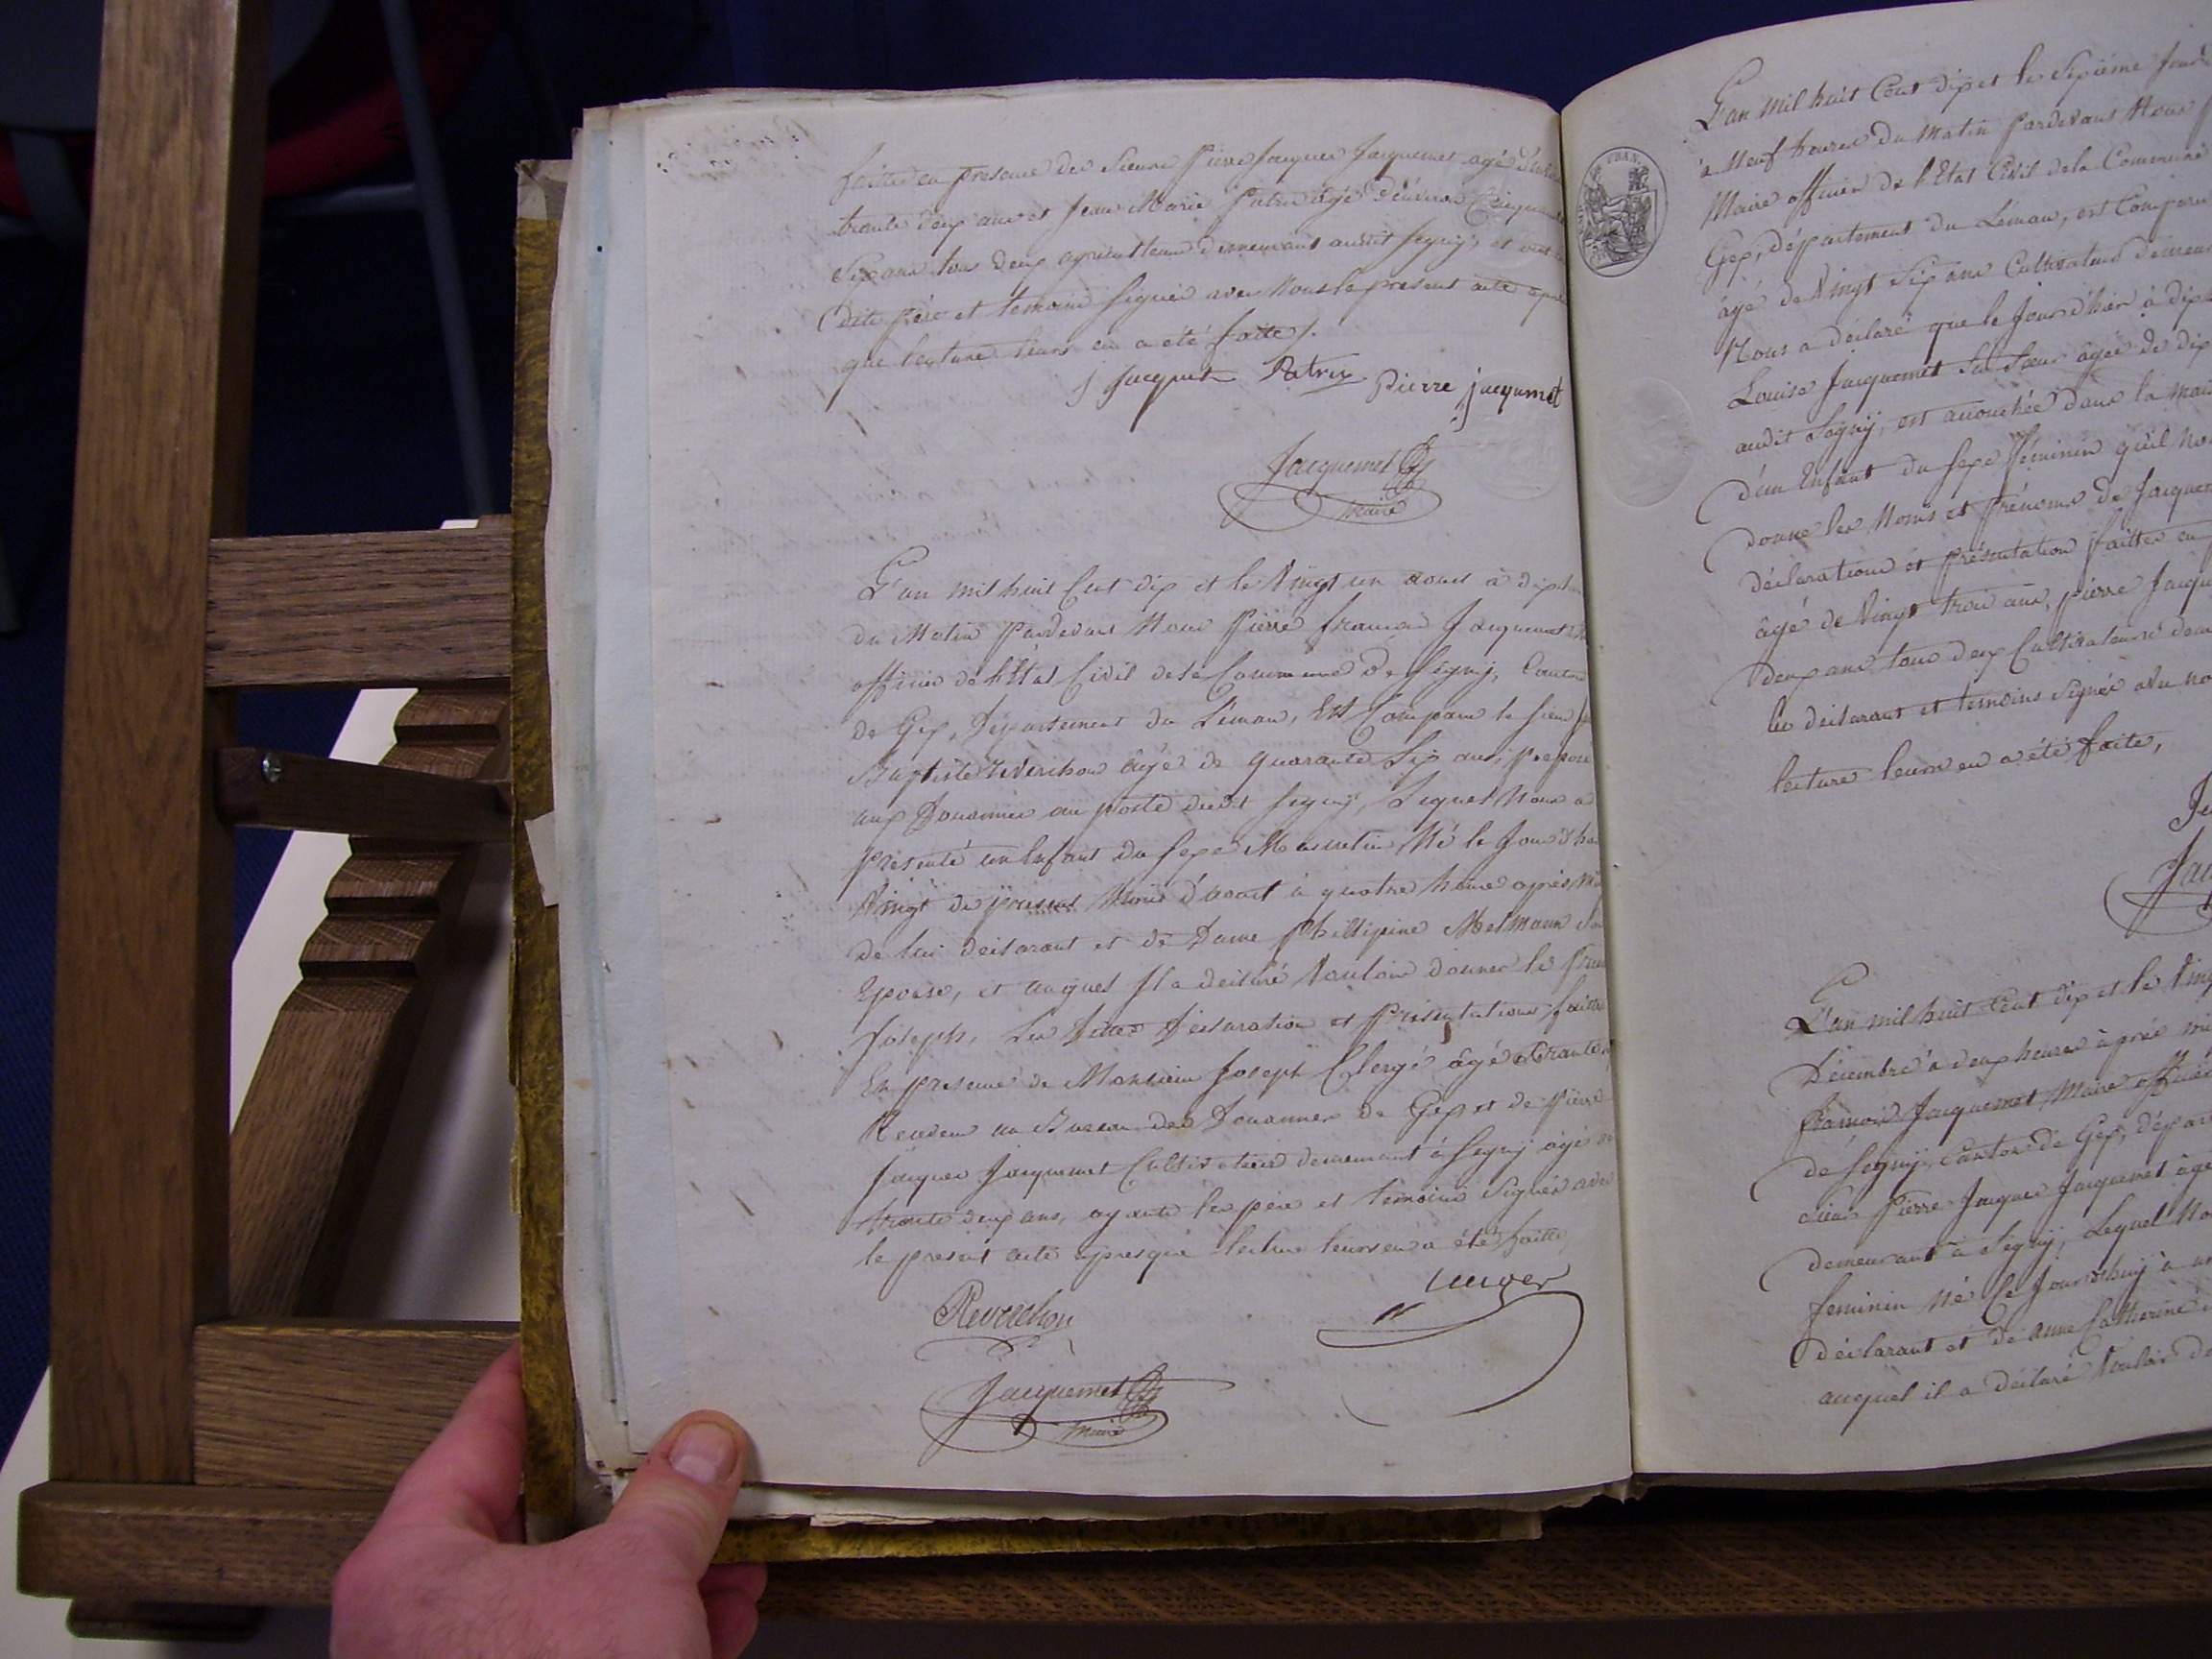 faittes en presence des Sieurs Pierre Jacques Jacquemet agé
trente deux ans et Jean Marie Patrix agé d'environ Cinquante
Six ans tous deux agriculteurs demeurant audit Segny, et ont
dits père et temoins Signés avec Nous le present acte après
que lecture leurs en a été faitte /.
J Jacquet Patrix Pierre jacquemet
Jacquemet
Maire
L'an mil huit Cent dix et le Vingt un aout à dix
du Matin Pardevant Nous Pierre francois Jacquemet
officier de l'Etat Civil de la Commune De Segny, Canton
de Gex, Département du Léman, Est Comparu le Sieur
Baptiste Reverchon âgé de quarante Six ans, Preposé
aux Douannes au poste dudit Segny, Lequel Nous a
présenté un Enfant du Sexe Masculin Né le Jour d'hier
Vingt du présent Mois d'aout à quatre heures après
de lui déclarant et de Dame Phillipine Melmann
Epouse, et auquel Il a déclaré Vouloir donner le
Joseph, Les dittes déclaration et Présentations faittes
En presence de Monsieur Joseph Clergé âgé
Receveur au Bureau des Douannes de Gex et de Pierre
Jacques Jacquemet Cultivateur demeurant à Segny âgé
trente deux ans, ayants les père et témoins Signés avec
le present acte après que lecture leurs en a été faitte
Reverchon
Jacquemet
Maire
L'an mil huit Cent dix et le Sixième
à Neuf heures du Matin Pardevant Nous
Maire officier de l'Etat Civil de la Commune
Gex, département du Léman, est Comparu
âgé de Vingt Six ans Cultivateur
Nous a déclaré que le Jour d'hier à dix
Louise Jacquemet Sa Sœur âgée de dix
audit Segny, est accouchée dans la
d'un Enfant du Sexe féminin qu'il
donné les Noms et prénoms de
déclarations et présentation faittes en
âgé de Vingt trois ans, pierre
deux ans tous deux Cultivateurs
les déclarant et temoins Signés avec
lecture leurs en a été faite,
L'an mil huit Cent dix et le
Décembre à deux heures après
francois Jacquemet, Maire officier
de Segny, Canton de Gex,
Sieur Pierre Jacques Jacquemet
demeurant à Segny, Lequel
feminin Né le Jourd'huy à
déclarant et de Anne Catherine
auquel il a déclaré Vouloir